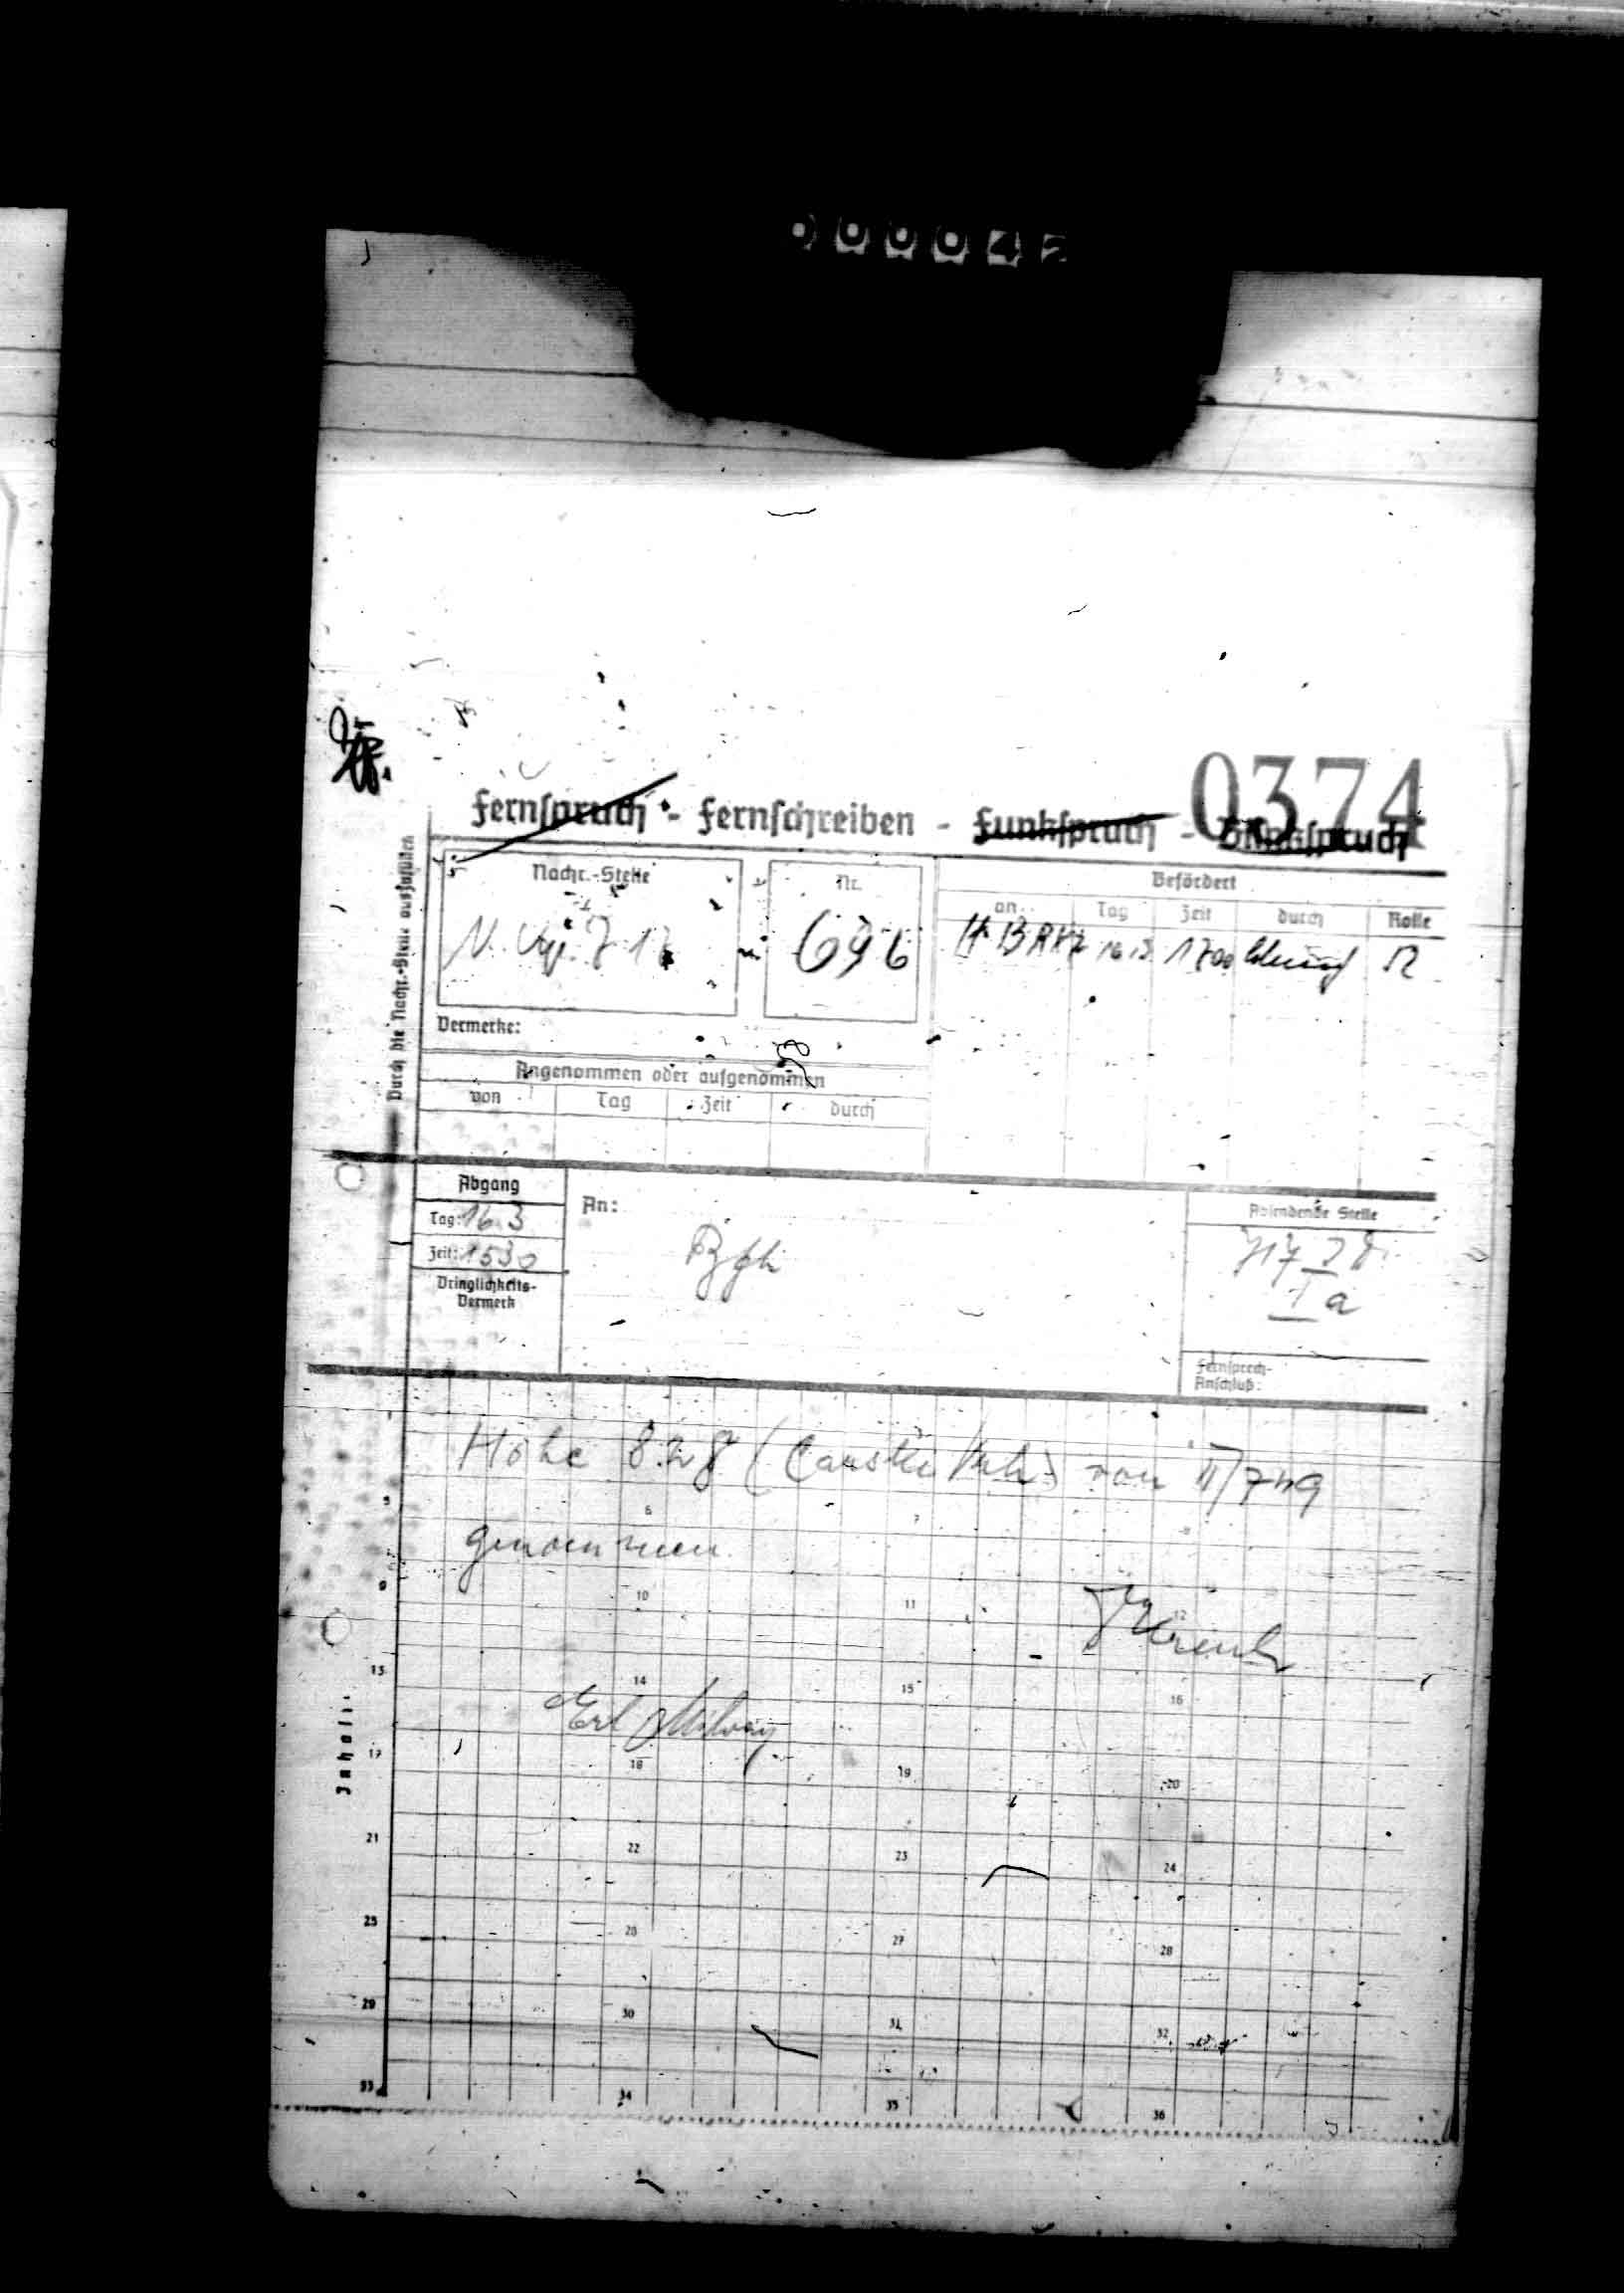 000042
0374
Fernspruch - Fernschreiben - Funkspruch - Blinkspruch
Durch die Nachr.-Stelle auszufüllen
Nachr.-Stelle
Nr.
Befördert
an
Tag
Zeit
durch
Rolle
696
1700
Vermerke:
Angenommen oder aufgenommen
von
Tag
Zeit
durch
Abgang
Tag: 16.3
Zeit: 1530
Dringlichkeits-
Vermerk
An:
Absendende Stelle
717 I D.
Ia
Fernsprech-
Anschluß:
Inhalt:
Höhe 828 ( von II/749
genommen
5 6 7 8
9 10 11 12
13 14 15 16
17 18 19 20
21 22 23 24
25 26 27 28
29 30 31 32
33 34 35 36
Erl